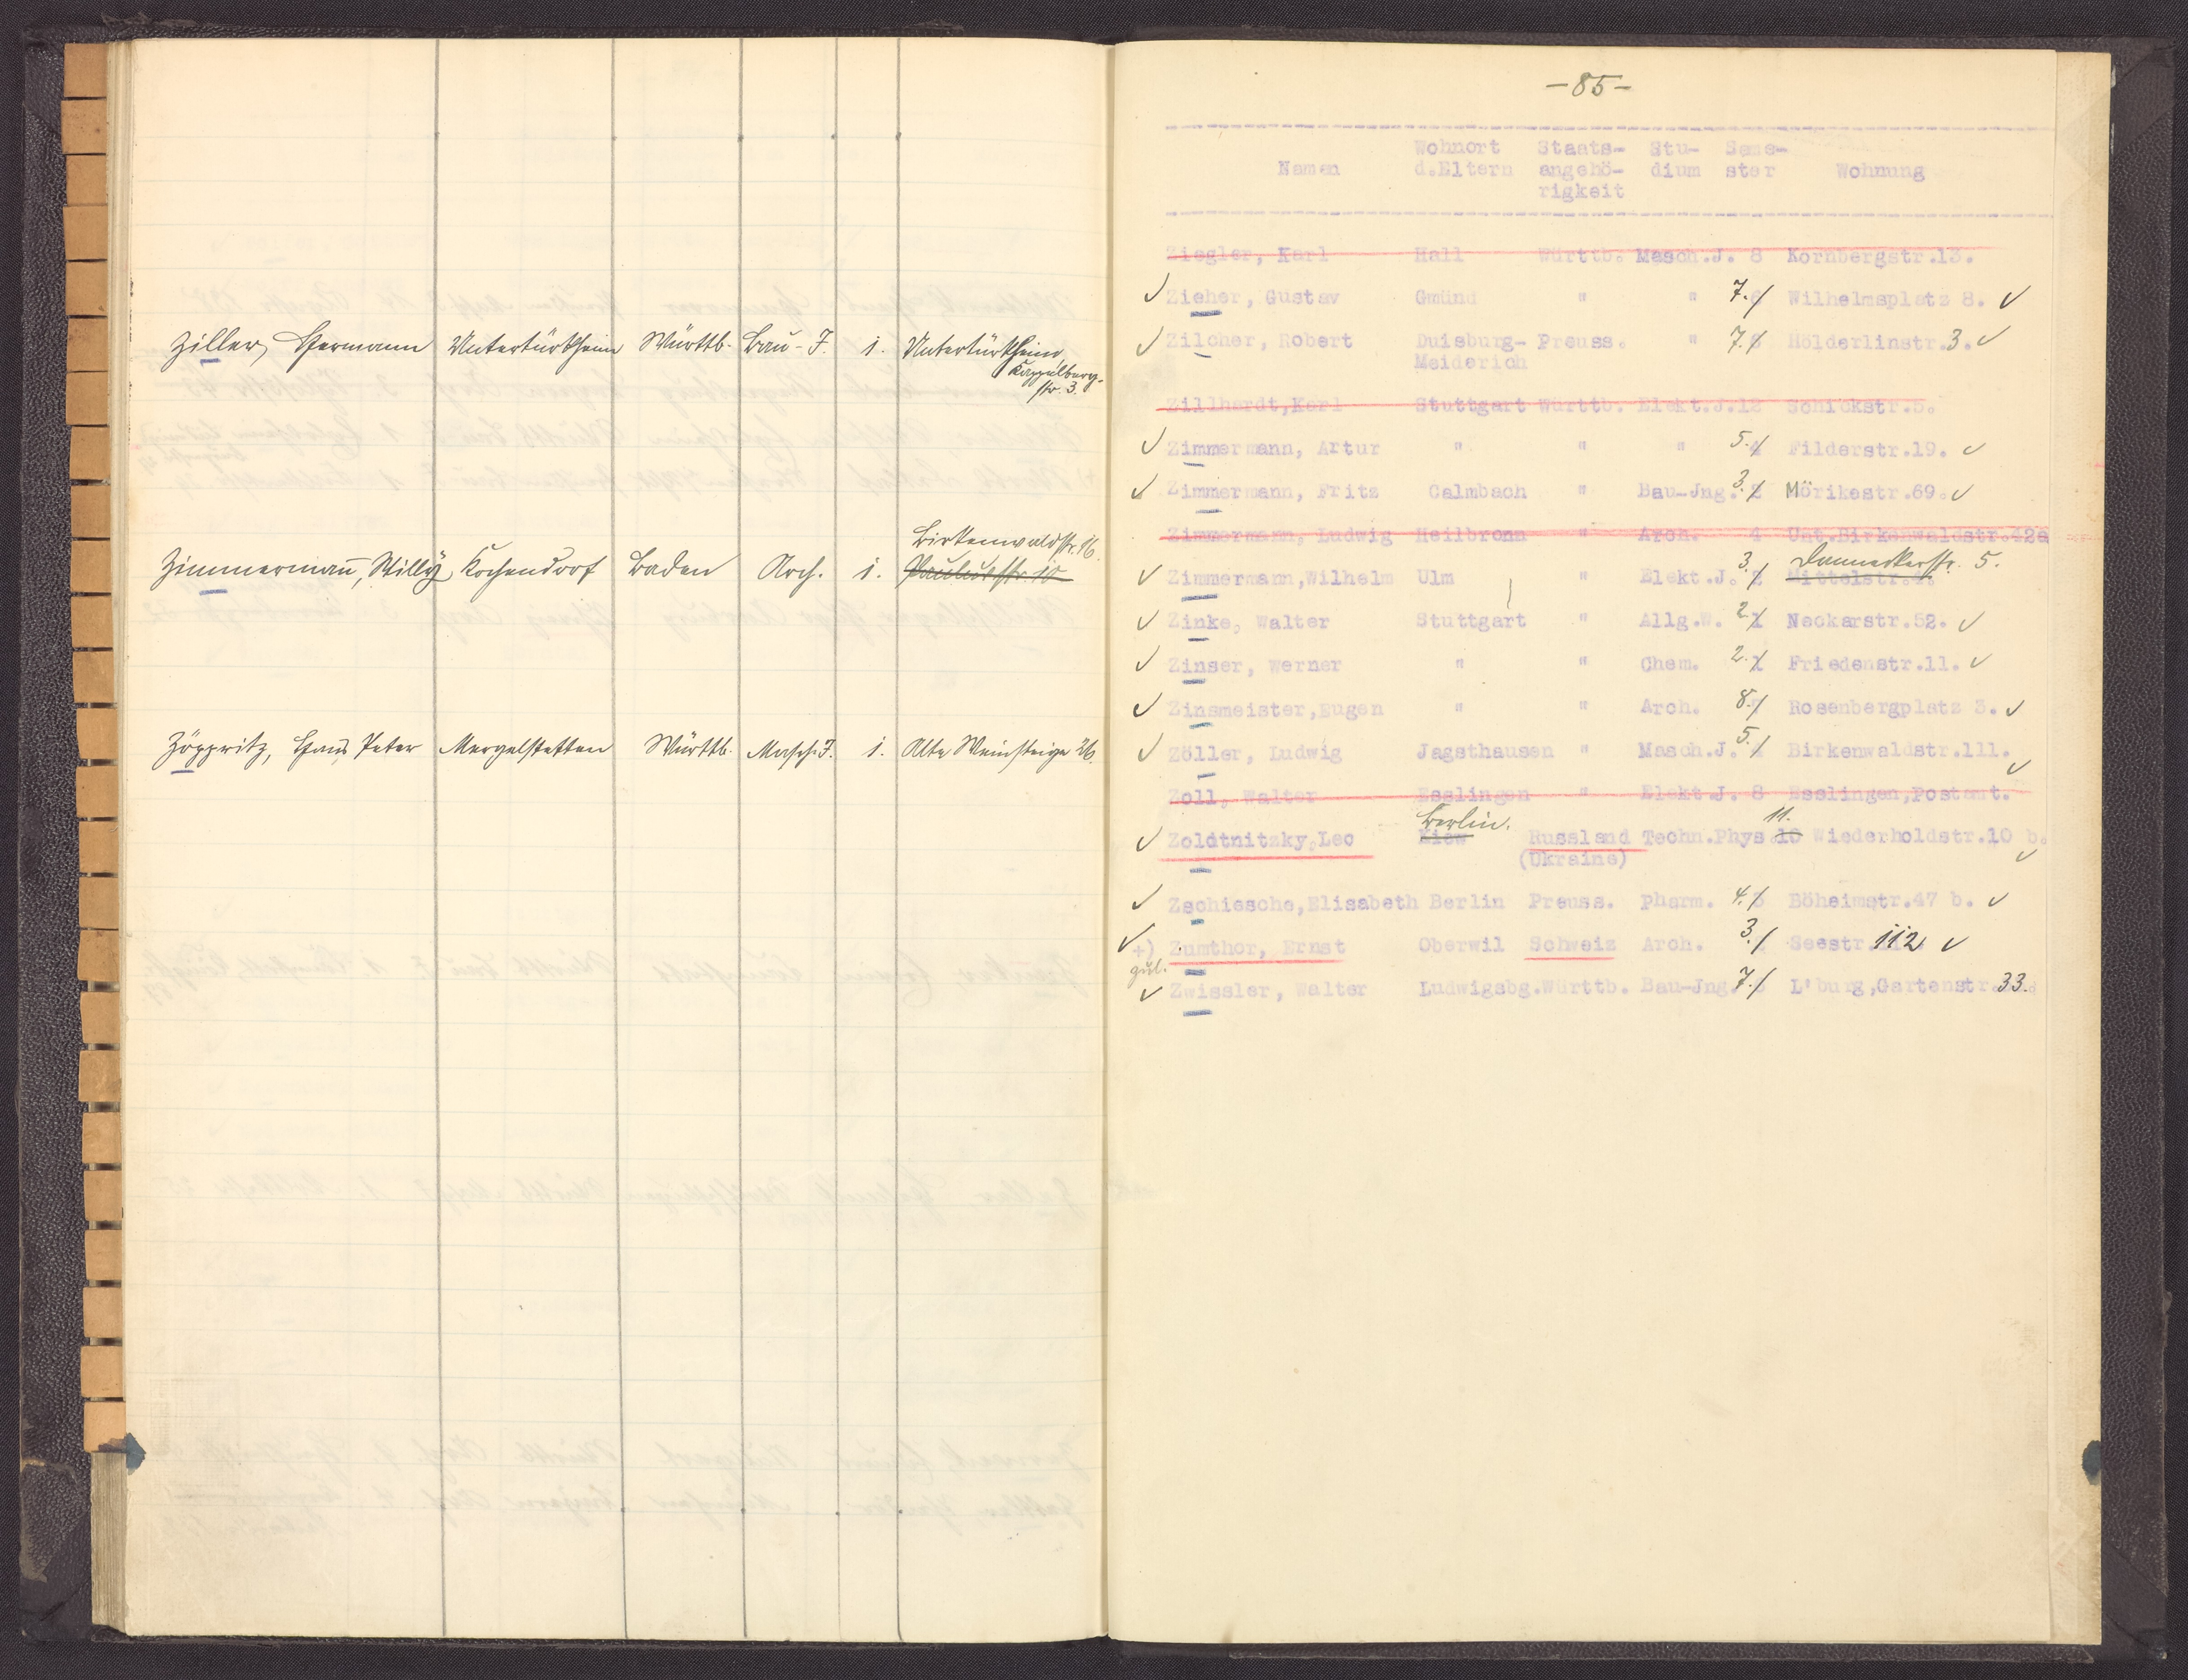 Ziller, Hermann Untertürkheim Württb. Bau-J. 1. Untertürkheim,
Kappelberg-
str. 3.
Birkenwaldstr. 16.
Zimmermann, Willy Kochendorf Baden Arch. 1. Paulusstr. 10
Zöppritz, Hans Peter Mergelstetten Württb. Masch.J. 1. Alte Weinsteige 26.
-85-
Namen Wohnort d.Eltern Staats-angehö-rigkeit Stu-dium Seme-ster Wohnung
Ziegler, Karl Hall Württb. Masch.J. 8 Kornbergstr.13.
Zieher, Gustav Gmünd " " 7. 6 Wilhelmsplatz 8.
Zilcher, Robert Duisburg- Preuss. " 7. 6 Hölderlinstr.3.
Meiderich
Zillhardt,Karl Stuttgart Württb. Elekt.J.12 Schickstr.5.
Zimmermann, Artur " " " 5. 4 Filderstr.19.
Zimmermann, Fritz Calmbach " Bau-Jng. 3. 2 Mörikestr.69.
Zimmermann, Ludwig Heilbronn " Arch. 4 Unt.Birkenwaldstr.42a
3. Danneckerstr. 5.
Zimmermann,Wilhelm Ulm " Elekt.J. 2 Mittelstr.4.
Zinke, Walter Stuttgart " Allg.W. 2. 1 Neckarstr.52.
Zinser, Werner " " Chem. 2. 1 Friedenstr.11.
Zinsmeister,Eugen " " Arch. 8. 7 Rosenbergplatz 3.
Zöller, Ludwig Jagsthausen " Masch.J. 5. 4 Birkenwaldstr.111.
Zoll, Walter Esslingen " Elekt.J. 8 Esslingen,Postamt.
Berlin. 11.
Zoldtnitzky,Leo Kiew Russland Techn.Phys.10 Wiederholdstr.10 b.
(Ukraine)
Zschiesche,Elisabeth Berlin Preuss. Pharm. 4. 3 Böheimstr.47 b.
+) Zumthor, Ernst Oberwil Schweiz Arch. 3. Seestr. 112
gül.
Zwissler, Walter Ludwigsbg.Württb. Bau-Jng. 7. L'burg,Gartenstr.33.